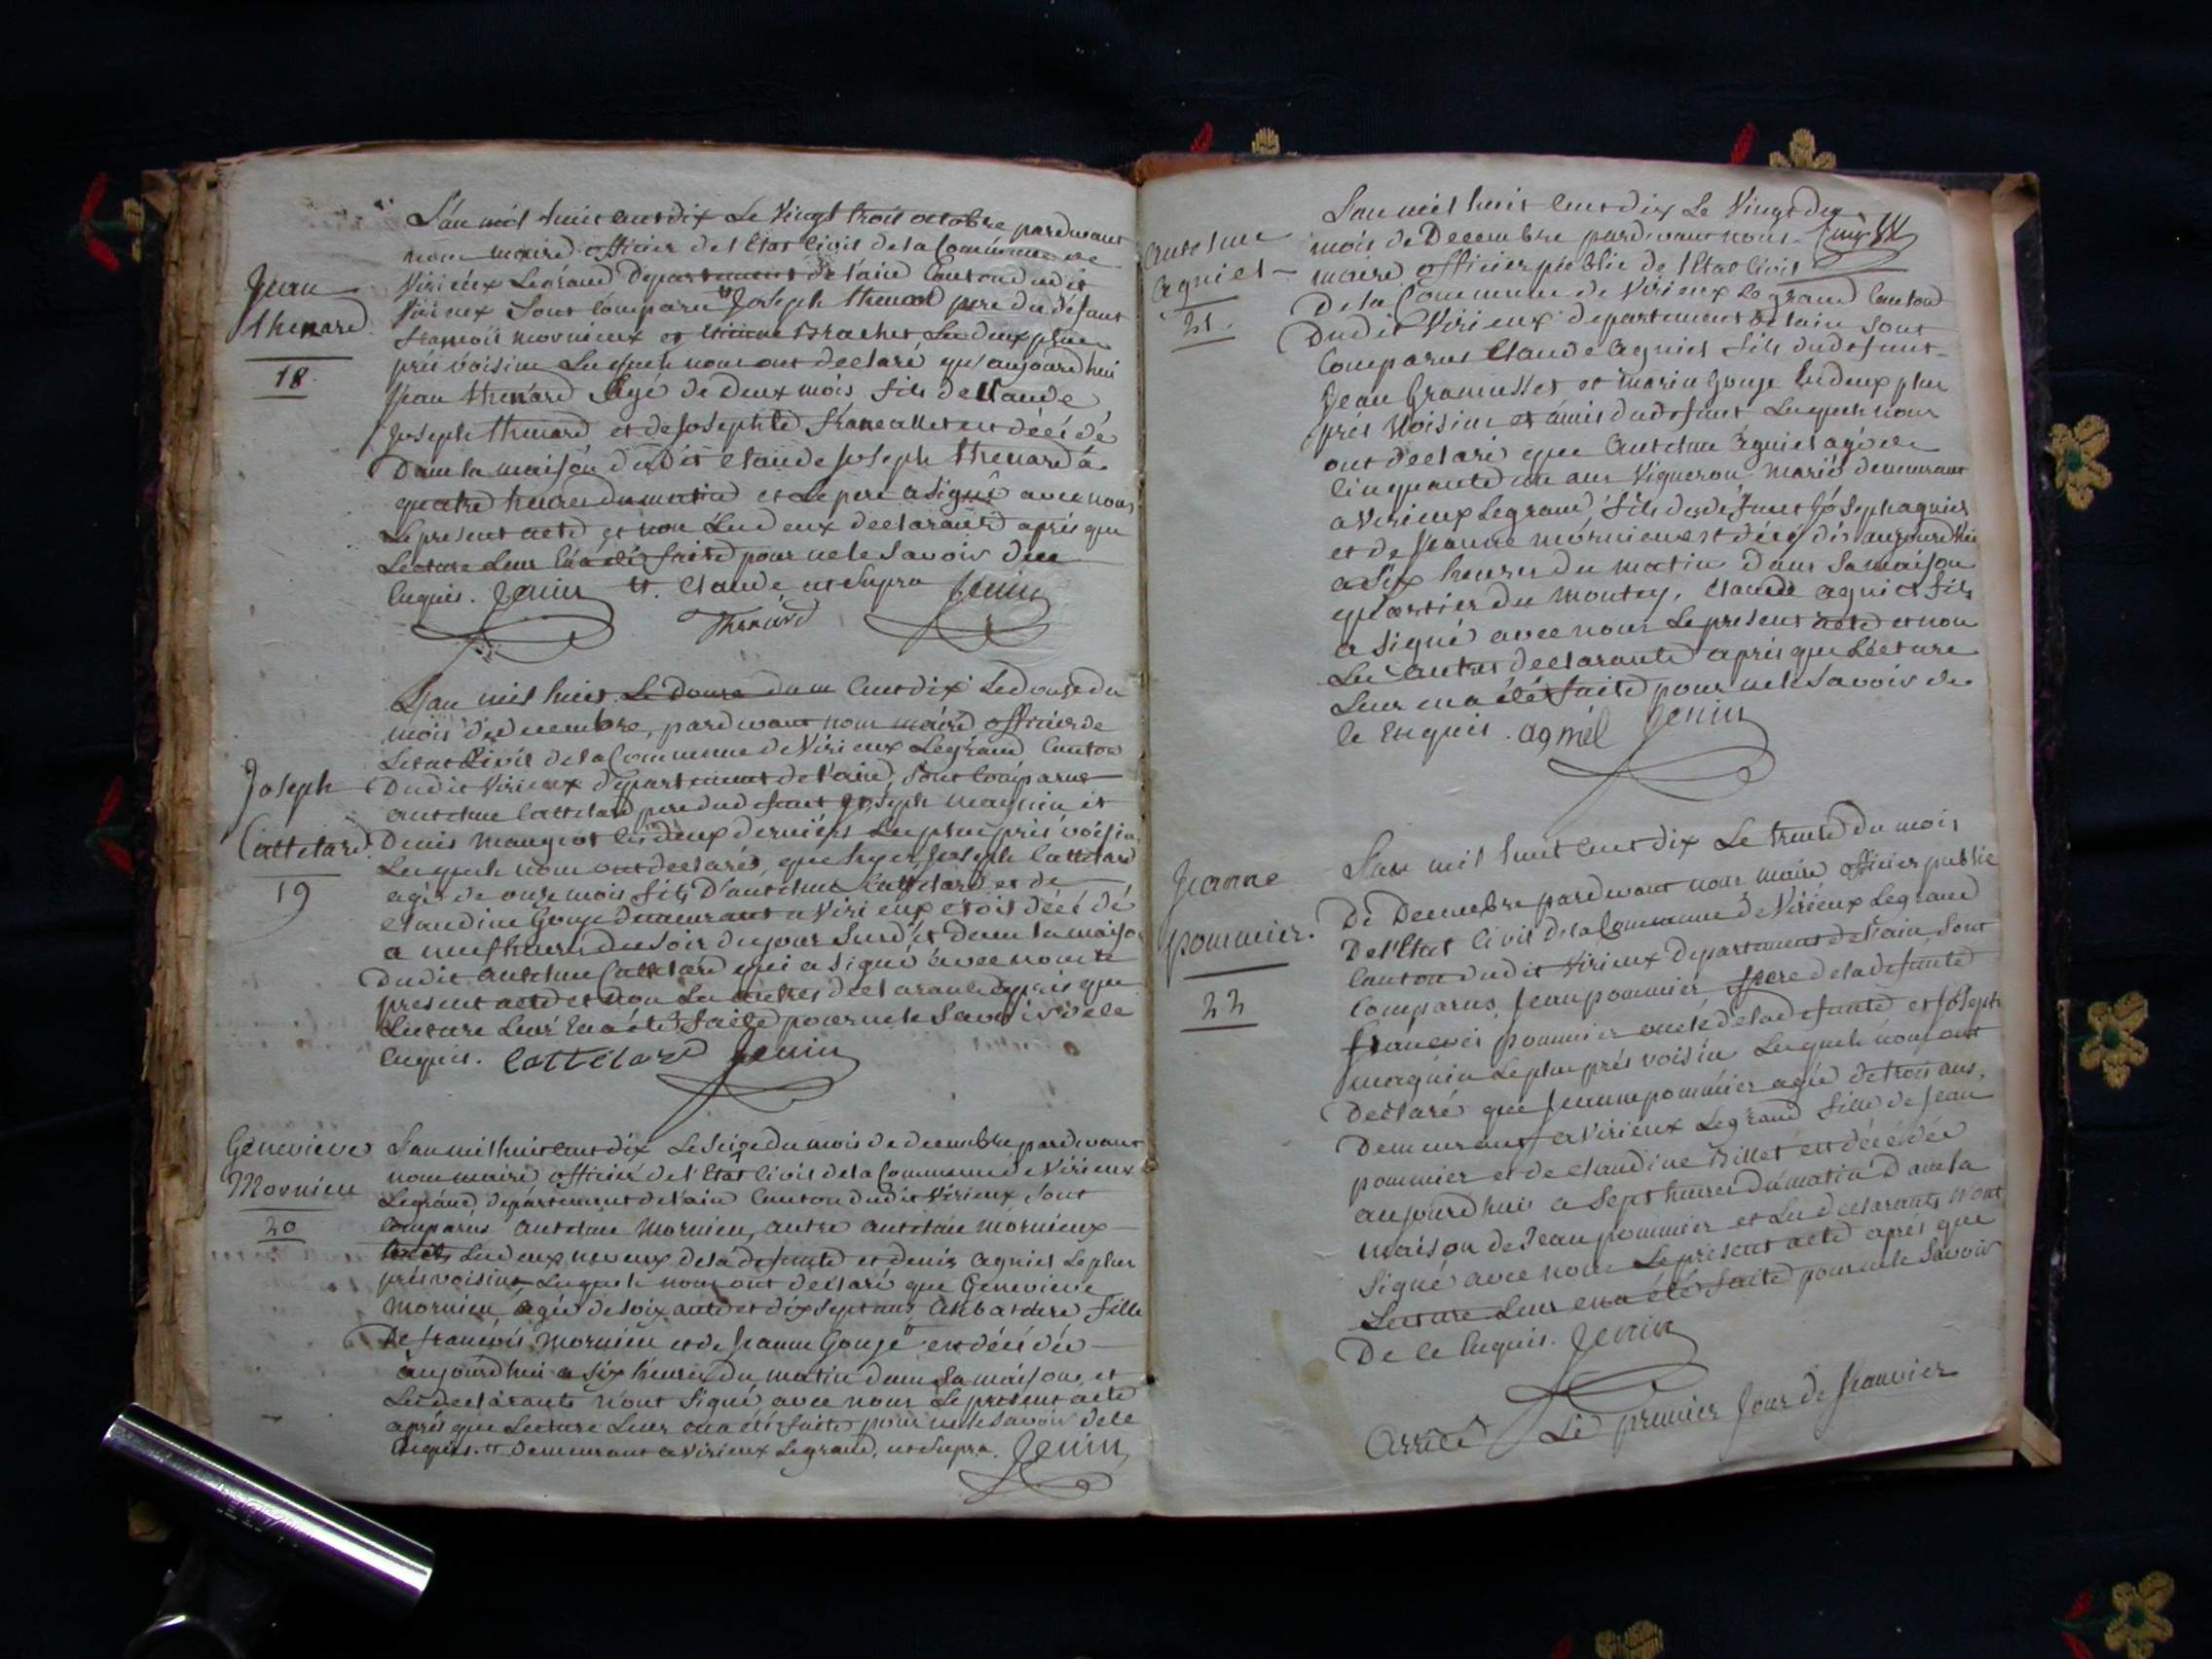 Jean
thenard
18
L'an mil huit cent dix Le Vingt trois octobre pardevant
nous maire officier de l'Etat Civil de la Commune de
Virieux Legrand Departement de l'ain Canton dudit
Virieux Sont Comparu Joseph thenard pere du défaunt
francois mornieux et Etienne Brachet Les deux plus
près voisins Lesquels nous ont declaré qu'aujourd hui
Jean thenard Agé de Deux mois fils de Claude
Joseph thenard et de Josephte est décédé
Dans la maison dudit Claude Joseph thenard à
quatre heures du matin et Le pere a Signé avec nous
Le present acte et non Les deux declarants après que
Lecture Leur En a été faite pour ne le Savoir de ce
Enquis. Jenin tt. Claude ut Supra Jenin
Thenard
Joseph
Cattelard
19
L'an mil huit Le Douze du m Cent dix Le douze du
mois de decembre, pardevant nous maire officier de
Letat Civil de la Commune de Virieux Legrand Canton
Dudit Virieux Departement de l'ain, Sont Comparus
antelme Cattelard pere dudefaunt Joseph magnin et
Denis mangeot les deux derniers Les plus près voisin
Lesquels nous ont declarés, que hyer Joseph Cattelard
agé de onze mois fils D'antelme Cattelard et de
Claudine Gouje demeurant a Virieux étoit décédé
a neuf heures du Soir du jour Susdit dans la maison
Dudit antelme Cattelard qui a Signé avec nous Le
present acte et non Les autres declarants après que
Lecture Leur En a été faite pour ne le Savoir de le
Enquis. Cattelard Jenin
Genevieve
Mornieu
20
L'an mil huit cent dix Le Seize du mois de decembre pardevant
nous maire officier de l'Etat Civil de la Commune de Virieux
Legrand departement de l'ain Canton dudit Virieux Sont
Comparus antelme Mornieu, autre antelme mornieux
Les deux neveux de la defunte et denis agniel Le plus
près voisins, Lesquels nous ont declaré que Genevieve
Mornieu agée de Soixante et dix Sept ans Celibataire fille
De francois Mornieu et de Jeanne Gouje est décédée
aujourd hui a Six heures du matin dans Sa maison et
Les declarants n'ont Signé avec nous Le present acte
après que Lecture Leur en a été faite pour ne le Savoir de le
Enquis. tt Demeurant a Virieux Legrand, ut Supra. Jenin
antelme
agniel
21.
L'an mil huit Cent dix Le Vingt du
mois de Decembre pardevant nous
maire officier public de l'Etat Civil
De la Commune de Virieux Le grand Canton
Dudit Virieux departement de lain Sont
Comparus Claude agniel fils dudefunt
Jean Gramusset et marin Gouje Les deux plus
près Voisins et amis dudefunt Lesquels nous
ont declaré que antelme agniel agé de
Cinquante un ans Vigneron Marié demeurant
a Virieux Legrand fils des defunt Joseph agniel
et de Jeanne mornieux est décédés aujourd'hui
a Six heures du matin dans Sa maison
quartier du Montey, Claude agniel fils
a Signé avec nous Le present acte et non
Les autres declarants après que Lecture
Leur en a été faite pour ne le Savoir de
le Enquis. agniel Jenin
Jeanne
pommier.
22
L'an mil huit Cent dix Le trente du mois
De Decembre pardevant nous maire officier public
De l'Etat Civil de la Commune de Virieux Legrand
Canton dudit Virieux departement de l'ain Sont
Comparus Jean pommier pere de la defunte
francois pommier oncle de la defunte et Joseph
magnin Le plus près voisin Lesquels nous ont
Declaré que Jeanne pommier agée de trois ans,
Demeurant a Virieux Legrand fille de Jean
pommier et de Claudine Billet est décédée
aujourd huis a Sept heures du matin Dans la
maison de Jean pommier et Les declarants n'ont
Signé avec nous Le present acte après que
Lecture Leur en a été faite pour ne le Savoir
De le Enquis. Jenin
Arrêté Le premier Jour de Janvier